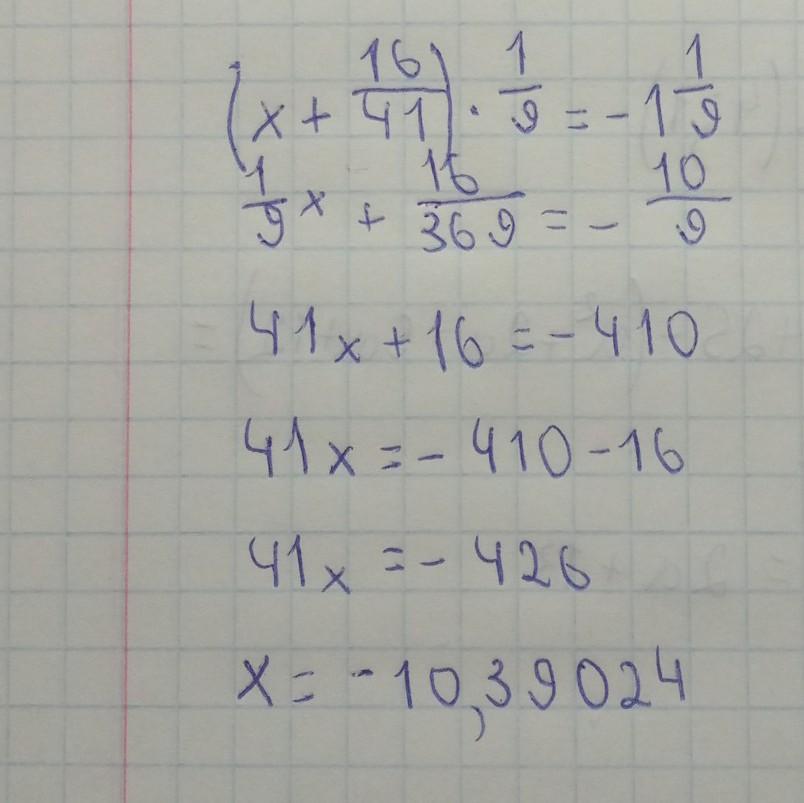 (x + 16/41) · 1/9 = - 1 1/9
1/9 x + 16/369 = - 10/9
41x + 16 = - 410
41x = - 410 - 16
41x = - 426
x = - 10,39024